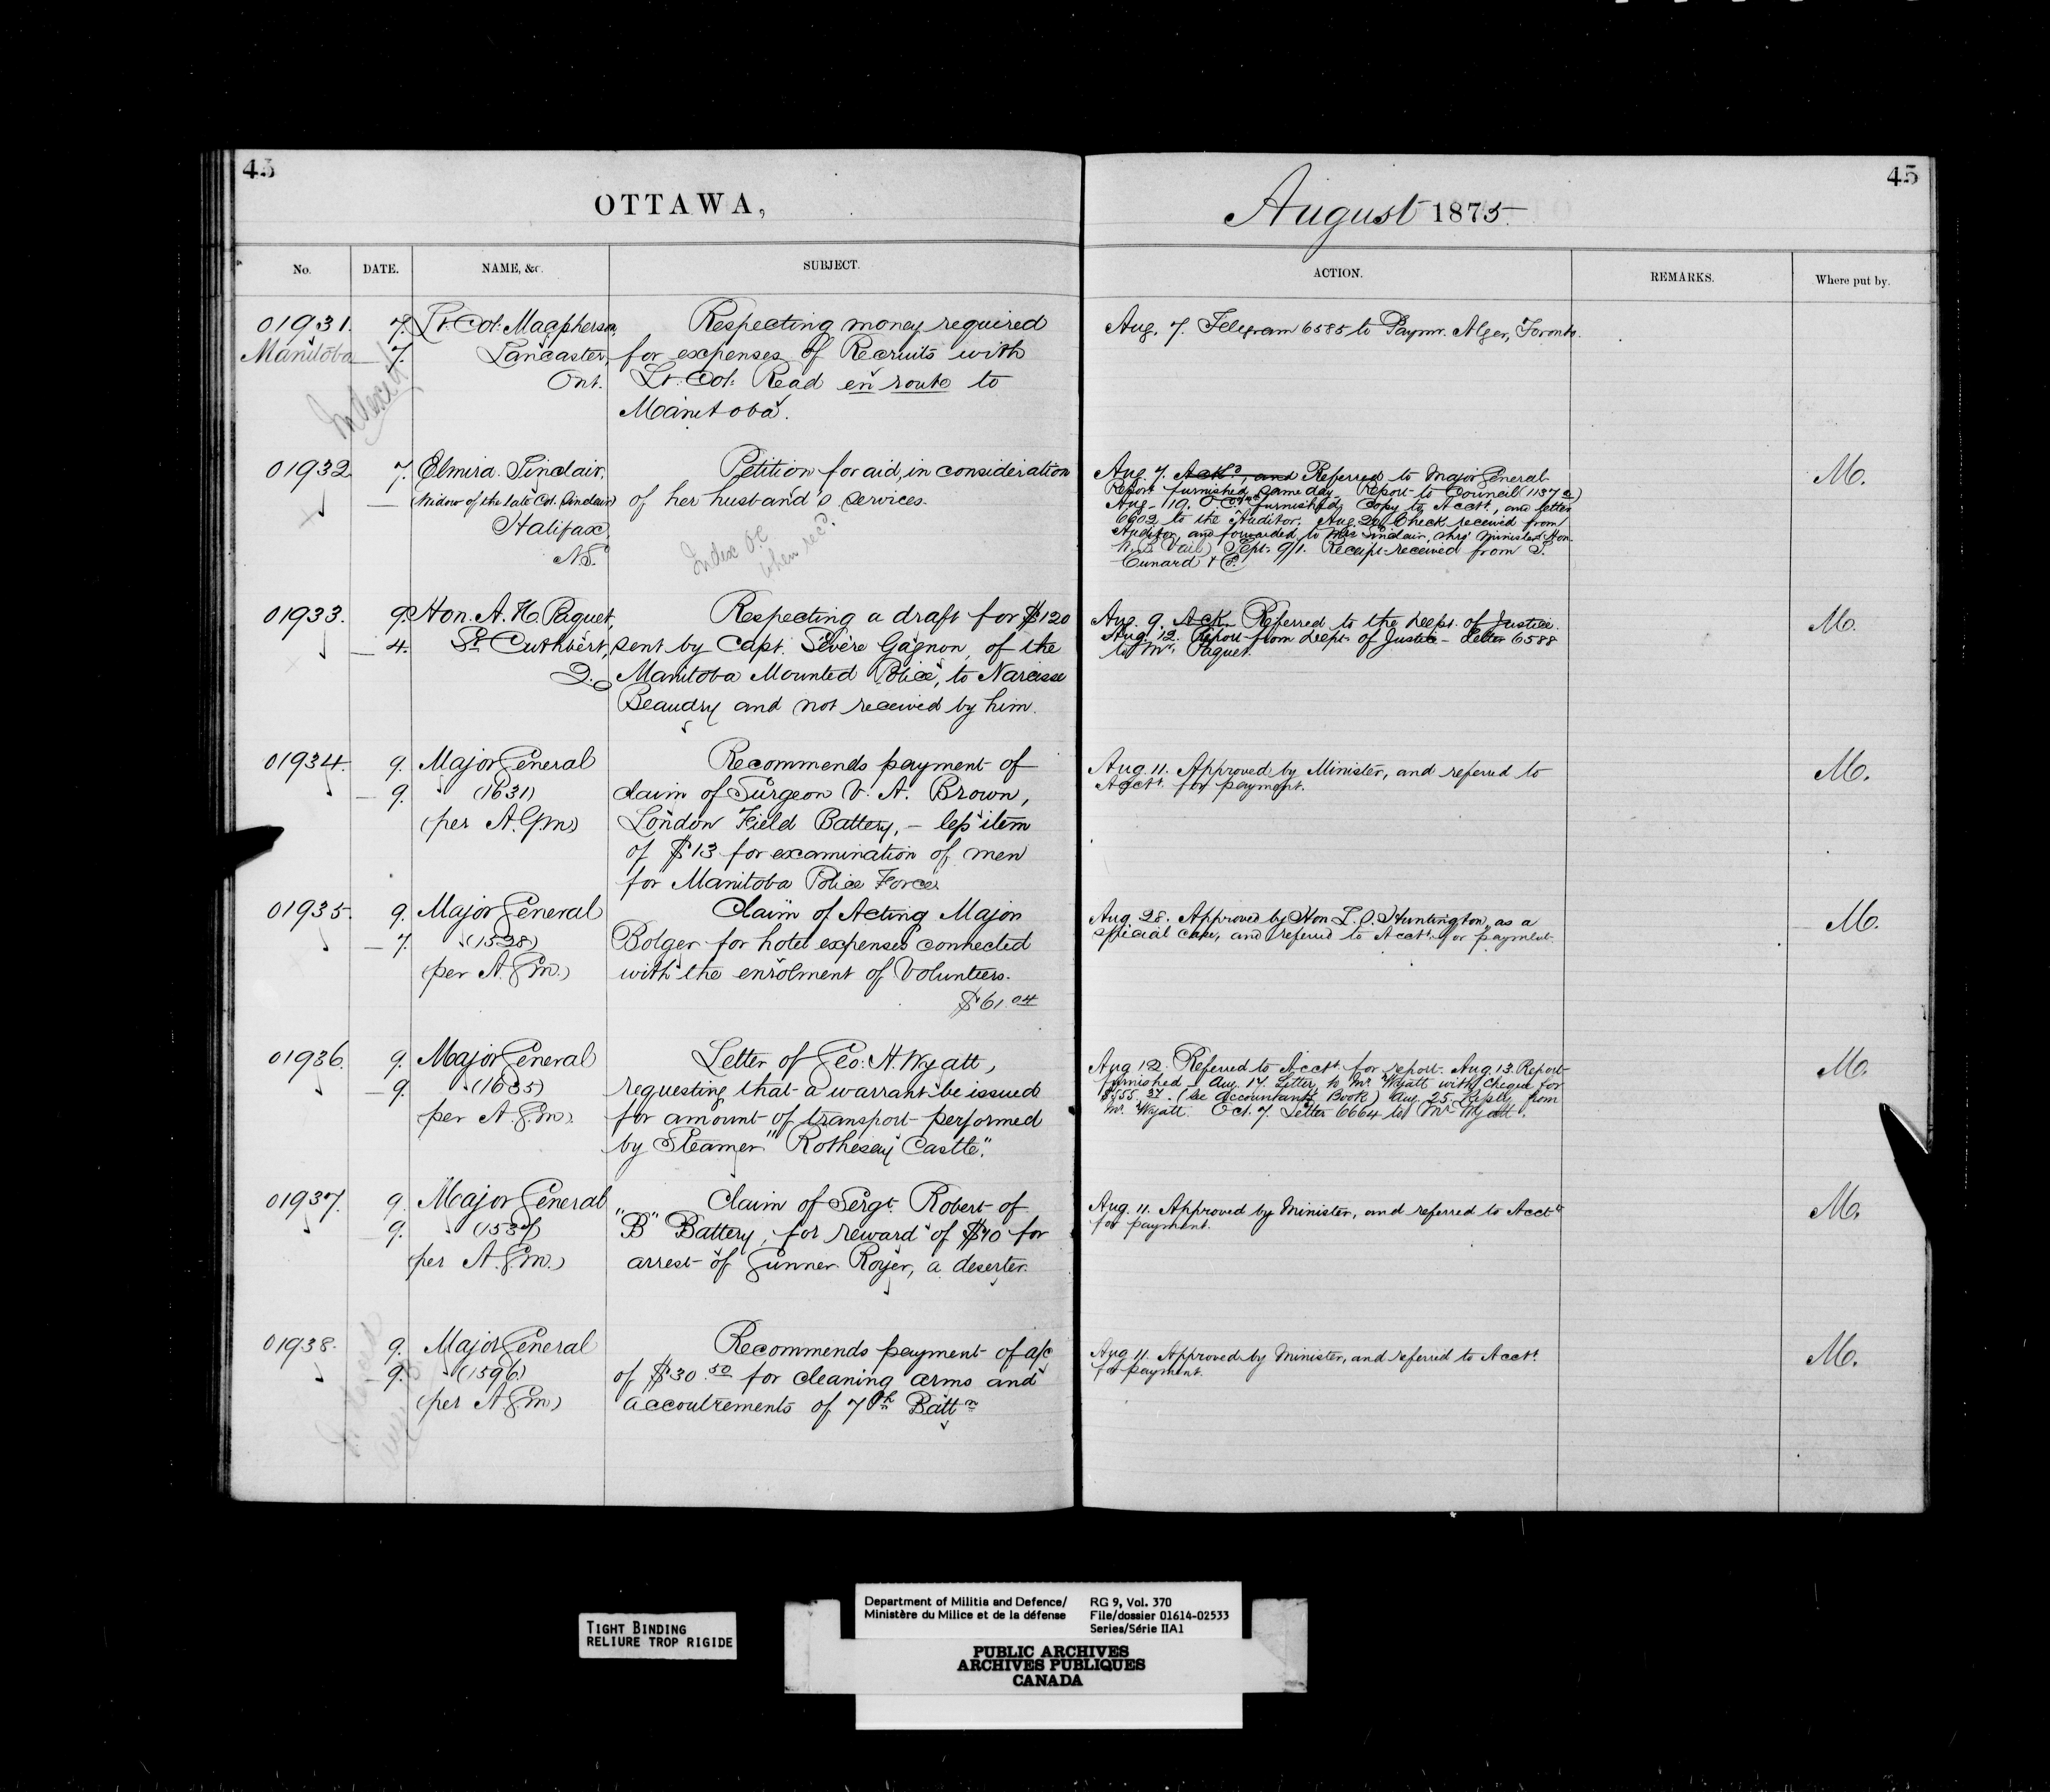 45
OTTAWA,
No.
DATE.
NAME, &c.
SUBJECT.
01931. 7. Lt. Col: Macpherson, Respecting money required
Manitoba — 7. Lancaster, for expenses of Recruits with
Ont. Lt. Col: Read en route to
Manitoba.
Indexed
01932 7. Elmira Sinclair, Petition for aid, in consideration
— (Widow of the late Col. Sinclair) of her husband's services.
Halifax,
N.S.
Index OC
when recd.
01933. 9. Hon. A. H. Paquet, Respecting a draft for $120
— 4. St. Cuthbert, sent by Capt. Sévère Gagnon, of the
Q. Manitoba Mounted Police, to Narcisse
Beaudry and not received by him.
01934. 9. Major General Recommends payment of
— 9. (1631) claim of Surgeon V. A. Brown,
(per A.G.m) London Field Battery, – less item
of $13 for examination of men
for Manitoba Police Force.
01935. 9. Major General Claim of Acting Major
— 7. (1528) Bolger for hotel expenses connected
(per A.G.m.) with the enrolment of Volunteers.
$61.04
01936. 9. Major General Letter of Geo: H. Wyatt,
— 9. (1635) requesting that a warrant be issued
(per A.G.m.) for amount of transport performed
by Steamer "Rothesay Castle".
01937. 9. Major General Claim of Sergt. Robert of
— 9. "B" Battery, for reward of $40 for
(per A.G.m.) arrest of Gunner Royer, a deserter.
01938. 9. Major General Recommends payment of a/c
— 9. (1596) of $30.50 for cleaning arms and
(per A G.m) accoutrements of 7th Battn
Indexed
August 1875.
45
ACTION.
REMARKS.
Where put by.
Aug. 7. Telegram 6585 to Paymr. Alger, Toronto.
Aug. 7. Ackd, and Referred to Major General M.
Report furnished same day. Report to Council (1137
Aug 119. O.C. furnished, Copy to Acctt., and letter
6602 to the Auditor. Aug. 20. Check received from
Auditor, and forwarded to Mrs Sinclair, thro' Minister Hon.
W. B. Vail) Sept. 9/1. Receipt received from S.
Cunard & Co.
Aug. 9. Ack. Referred to the Dept. of Justice. M.
Aug. 12. Report from Dept. of Justice – Letter 6588
to Mr. Paquet.
Aug. 11. Approved by Minister, and referred to M.
Acctt. for payment.
Aug. 28. Approved by Hon L. S. Huntington, as a M.
special case, and referred to Acctt. for payment.
Aug 12. Referred to Acctt. for report. Aug. 13. Report M.
furnished – Aug. 17. Letter to Mr. Wyatt with Cheque for
(see Accountants Book) Aug. 25. Reply from
Mr. Wyatt. Oct. 7. Letter 6664 to Mr Wyatt.
Aug. 11. Approved by Minister, and referred to Acctt. M.
for payment.
Aug 11. Approved by Minister, and referred to Acctt. M.
for payment.
TIGHT BINDING
RELIURE TROP RIGIDE
Department of Militia and Defence/
Ministère du Milice et de la défense
RG 9, Vol. 370
File/dossier 01614-02533
Series/Série IIA1
PUBLIC ARCHIVES
ARCHIVES PUBLIQUES
CANADA